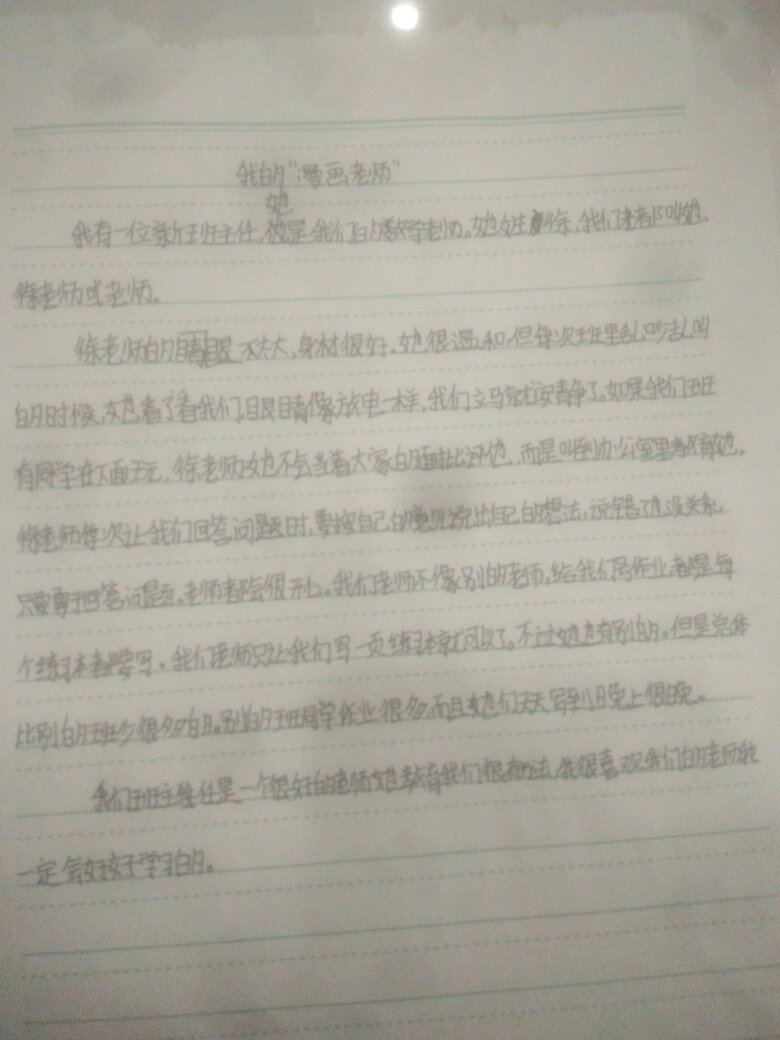 我的“漫画老师”
她
我有一位新班主任,她是我们的数学老师。她姓徐,我们都叫她
徐老师或老师。
徐老师的眼睛不太大,身材很好。她很温和,但每次班里乱叫
的时候,她看了看我们,眼睛像放电一样,我们立马就安静了。如果我们班
有同学在下面玩,徐老师她不会当着大家的面批评他,而是叫到办公室里教育她。
徐老师每次让我们回答问题时,要按自己的说出自己的想法,说错了也没关系。
只要勇于回答问题。老师都会很开心。我们老师不像别的老师,给我们写作业都是每
个练习本都要写。我们老师只让我们写一页练习本就可以了。不过她也有别的。但是总体
比别的班少很多的。别的班同学作业很多,而且她们天天写到晚上很晚。
我们班主任是一个很好的老师她教育我们很有办法,我很喜欢我们的老师我
一定会好好学习的。